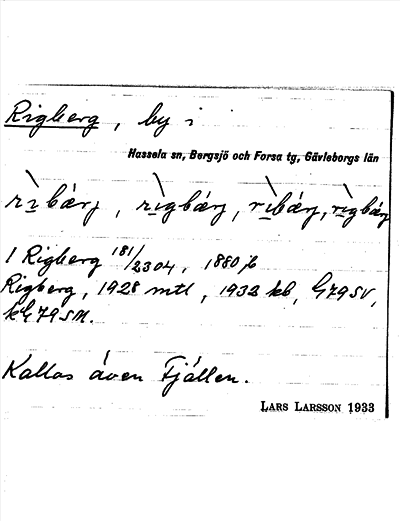 Rigberg, by i
Hassela sn, Bergsjö och Forsa tg, Gävleborgs län
rìbárj, rìgbárj, rìbárj, rìgbárj
1 Rigberg 181/2304, 1880 jb
Rigberg, 1928 mtl, 1933 kb, G79SV,
kG79SM.
Kallas även Fjällen.
LARS LARSSON 1933